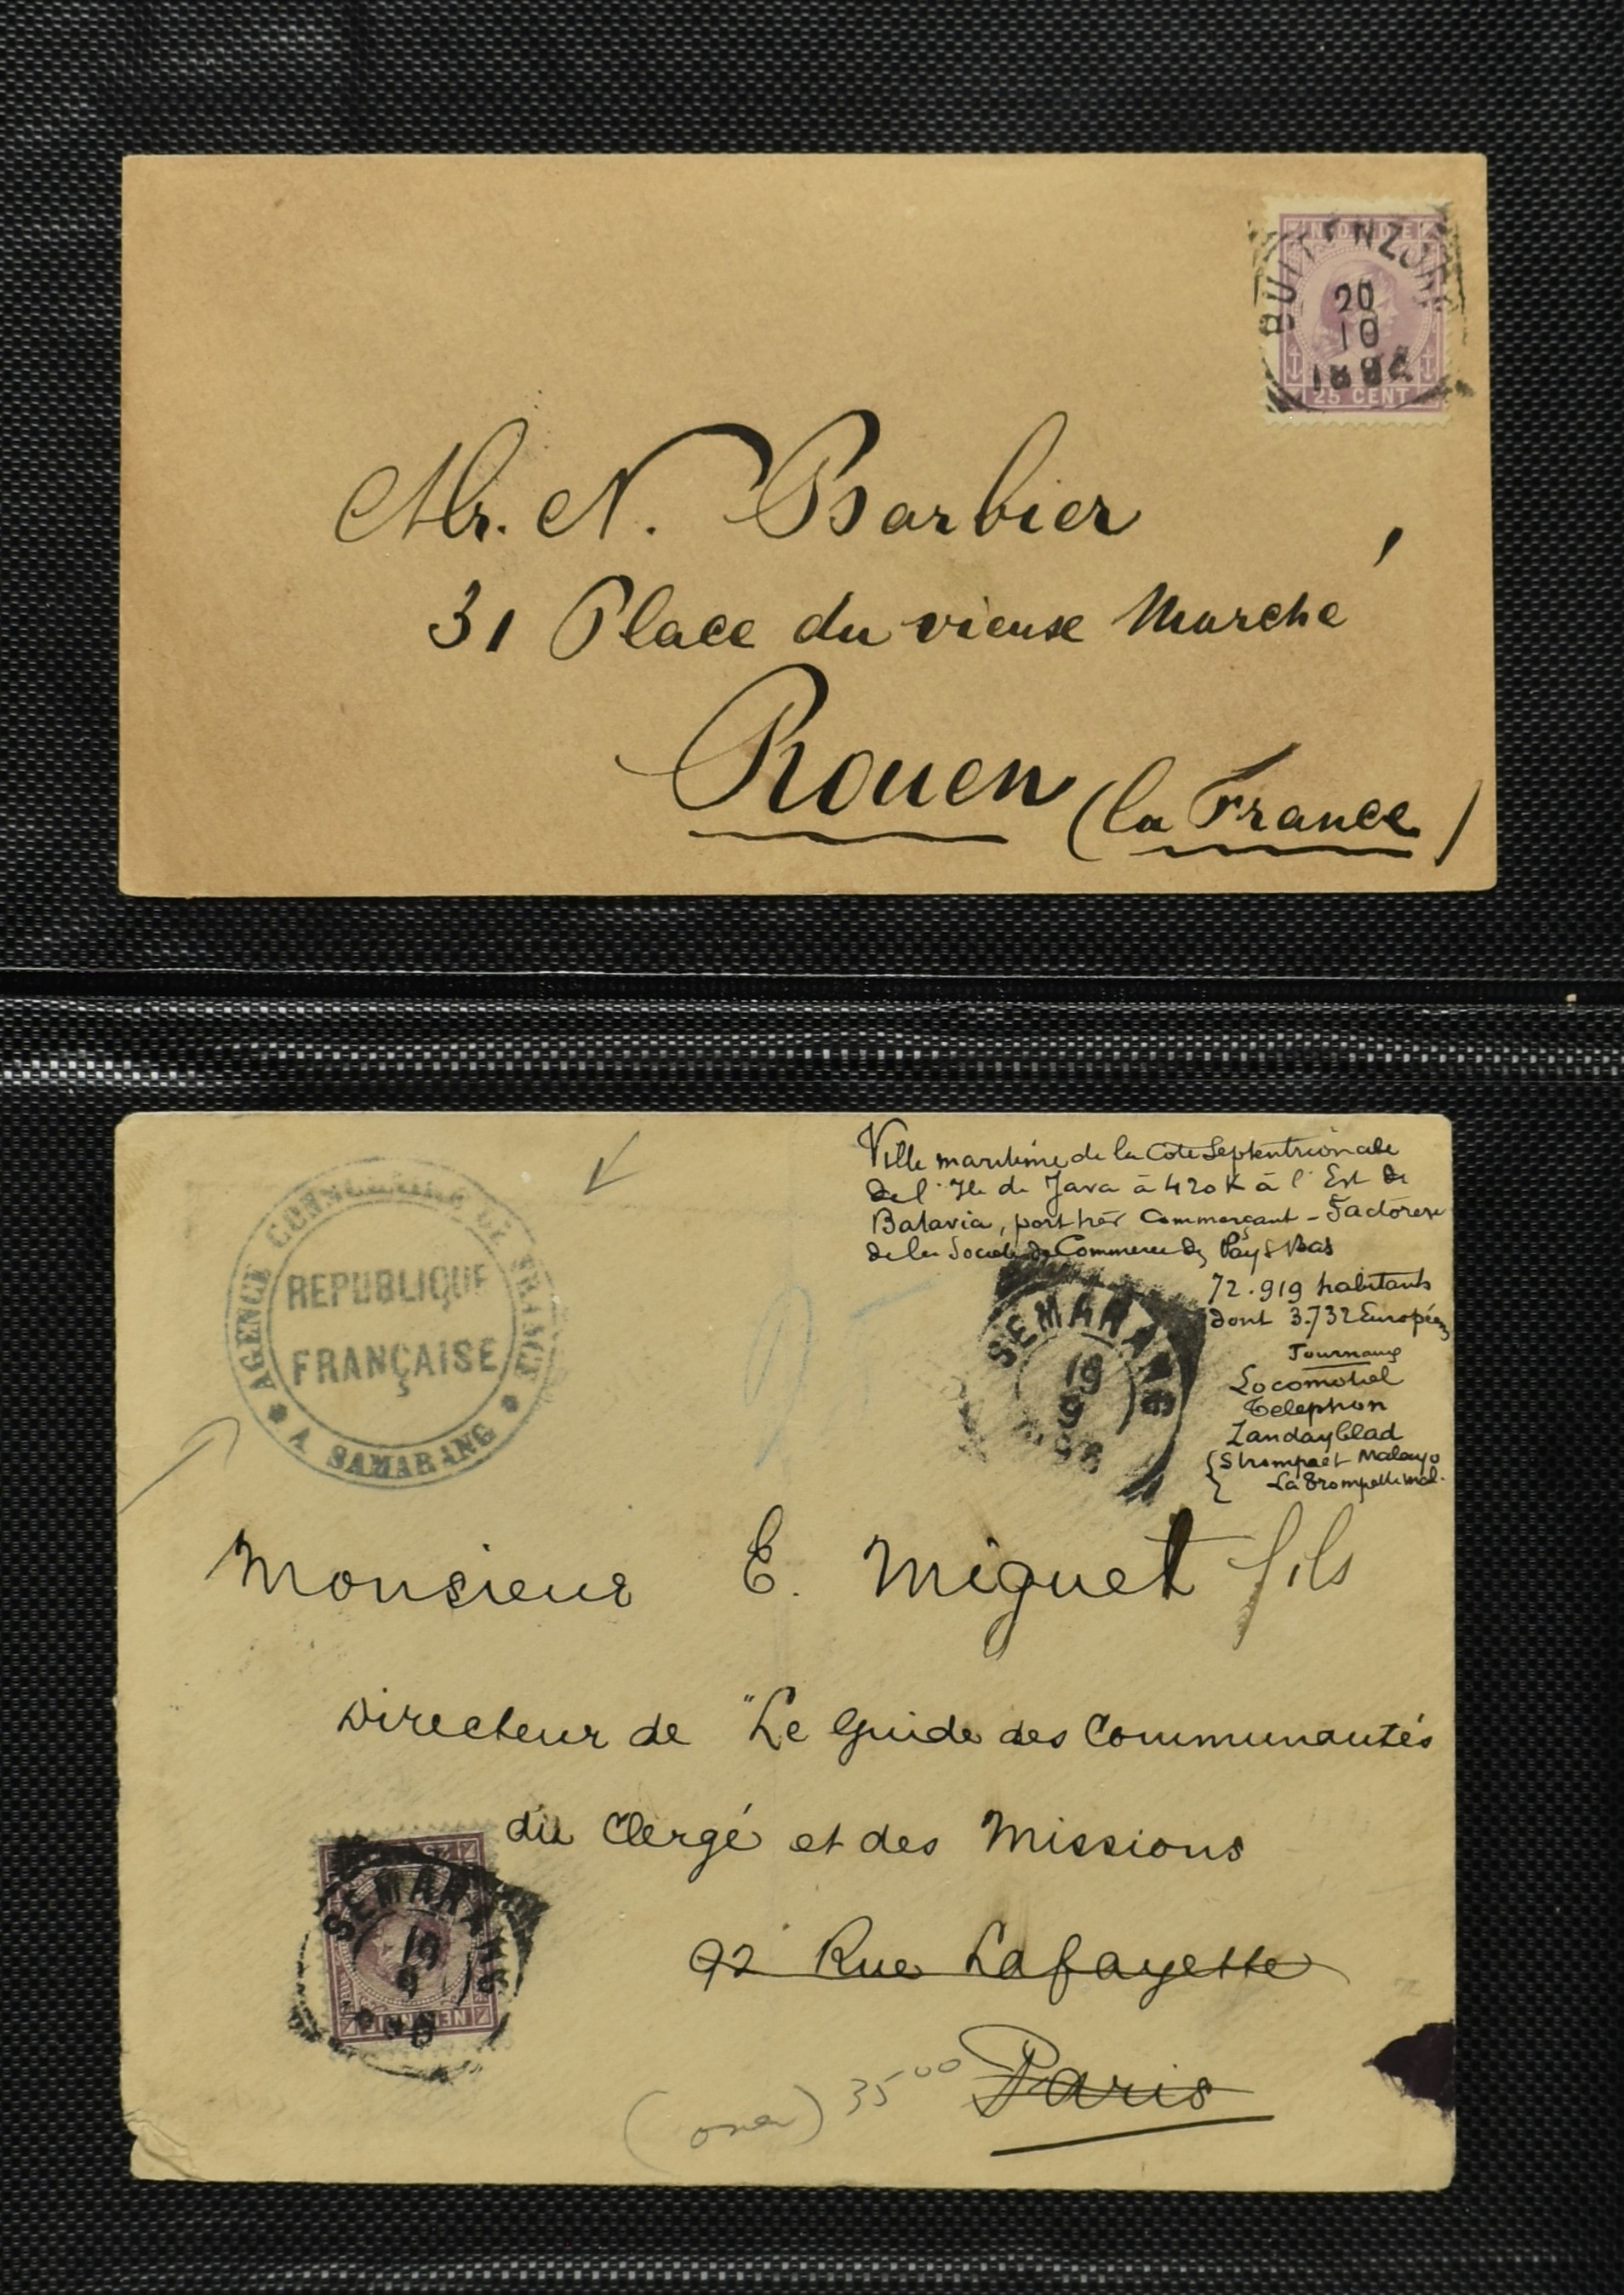 NED. INDIE
BUITENZORG
20
10
25 CENT
Mr. N. Barbier,
31 Place du vieuse Marché
Rouen (la France)
AGENCE CONSULAIRE DE FRANCE
REPUBLIQUE
FRANÇAISE
A SAMARANG
Ville maritime de la Côte Septentrionale
de l'Ile de Java à 420 K à l'Est de
Batavia, port très Commerçant - Factorerie
de la Société de Commerce des Pays Bas
72.919 habitants
dont 3.732 Européens
Journaux
Locomotief
Telephon
Zandayblad
Strompaet Malayo
La Trompette mal.
SEMARANG
19
9
98
Monsieur E. Miguet fils
Directeur de "Le Guide des Communautés
du Clergé et des Missions
92 Rue Lafayette
Paris
SEMARANG
19
9
NED. INDIE
(over) 35 00